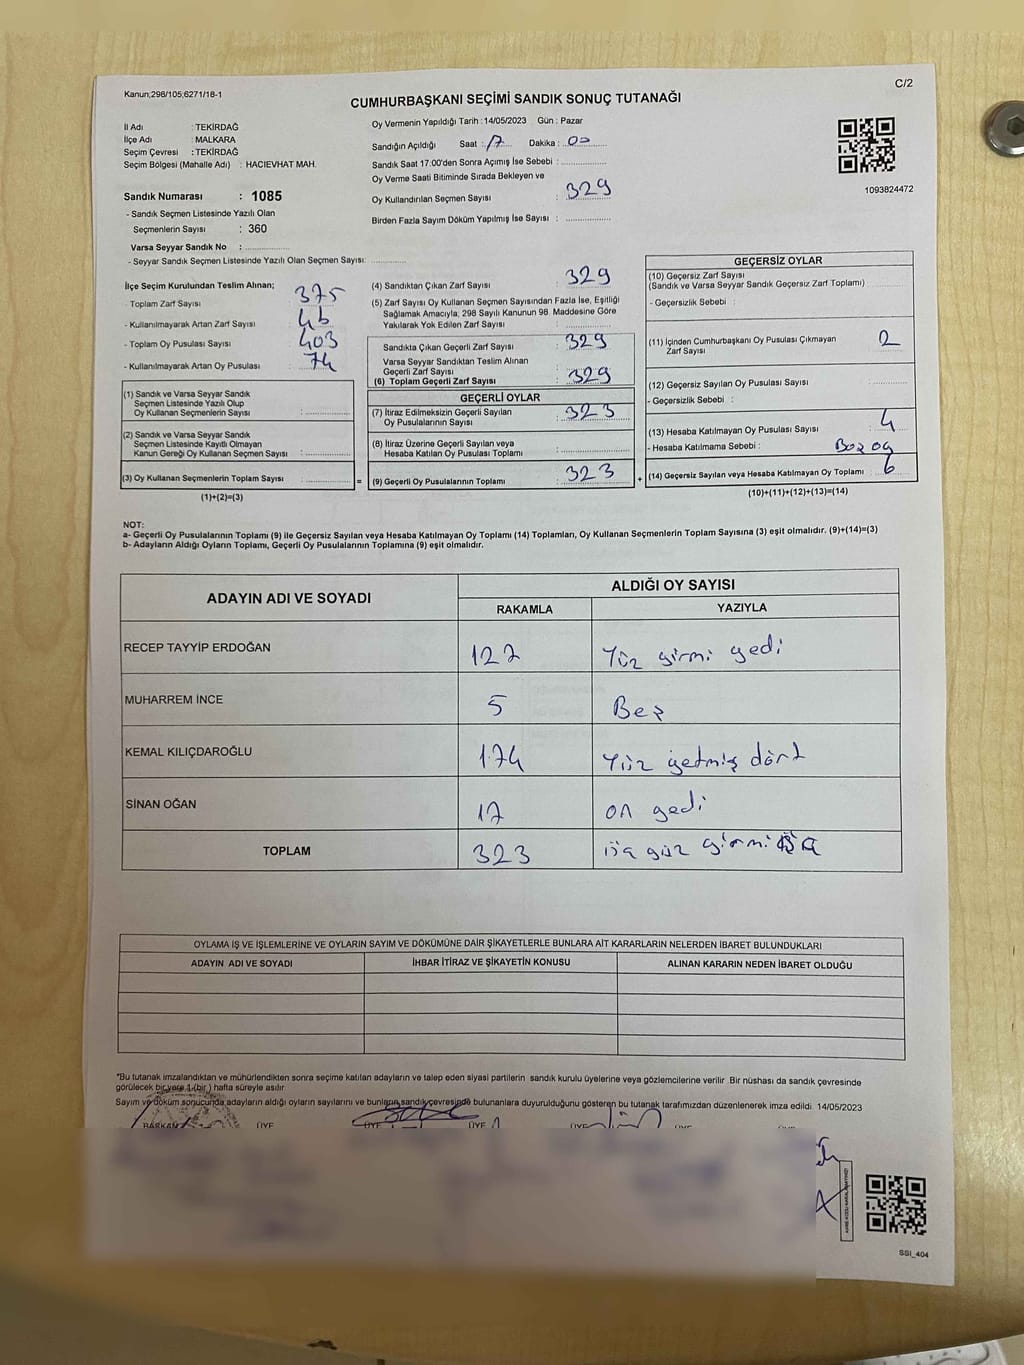 Kanun;298/105;6271/18-1
C/2
CUMHURBAŞKANI SEÇİMİ SANDIK SONUÇ TUTANAĞI
İl Adı : TEKİRDAĞ
İlçe Adı : MALKARA
Seçim Çevresi : TEKİRDAĞ
Seçim Bölgesi (Mahalle Adı) : HACIEVHAT MAH.
Sandık Numarası : 1085
- Sandık Seçmen Listesinde Yazılı Olan
Seçmenlerin Sayısı : 360
Varsa Seyyar Sandık No :
- Seyyar Sandık Seçmen Listesinde Yazılı Olan Seçmen Sayısı:
Oy Vermenin Yapıldığı Tarih :14/05/2023 Gün : Pazar
Sandığın Açıldığı Saat : 17 Dakika : 00
Sandık Saat 17:00'den Sonra Açımış İse Sebebi :
Oy Verme Saati Bitiminde Sırada Bekleyen ve
Oy Kullandırılan Seçmen Sayısı : 329
Birden Fazla Sayım Döküm Yapılmış İse Sayısı :
1093824472
İlçe Seçim Kurulundan Teslim Alınan;
- Toplam Zarf Sayısı : 375
- Kullanılmayarak Artan Zarf Sayısı : 46
- Toplam Oy Pusulası Sayısı : 403
- Kullanılmayarak Artan Oy Pusulası : 74
(1) Sandık ve Varsa Seyyar Sandık
Seçmen Listesinde Yazılı Olup
Oy Kullanan Seçmenlerin Sayısı :
(2) Sandık ve Varsa Seyyar Sandık
Seçmen Listesinde Kayıtlı Olmayan
Kanun Gereği Oy Kullanan Seçmen Sayısı :
(3) Oy Kullanan Seçmenlerin Toplam Sayısı : =
(1)+(2)=(3)
(4) Sandıktan Çıkan Zarf Sayısı : 329
(5) Zarf Sayısı Oy Kullanan Seçmen Sayısından Fazla İse, Eşitliği
Sağlamak Amacıyla; 298 Sayılı Kanunun 98. Maddesine Göre
Yakılarak Yok Edilen Zarf Sayısı :
Sandıkta Çıkan Geçerli Zarf Sayısı : 329
Varsa Seyyar Sandıktan Teslim Alınan
Geçerli Zarf Sayısı :
(6) Toplam Geçerli Zarf Sayısı : 329
GEÇERLİ OYLAR
(7) İtiraz Edilmeksizin Geçerli Sayılan
Oy Pusulalarının Sayısı : 323
(8) İtiraz Üzerine Geçerli Sayılan veya
Hesaba Katılan Oy Pusulası Toplamı :
(9) Geçerli Oy Pusulalarının Toplamı : 323 +
GEÇERSİZ OYLAR
(10) Geçersiz Zarf Sayısı
(Sandık ve Varsa Seyyar Sandık Geçersiz Zarf Toplamı)
- Geçersizlik Sebebi :
(11) İçinden Cumhurbaşkanı Oy Pusulası Çıkmayan
Zarf Sayısı : 2
(12) Geçersiz Sayılan Oy Pusulası Sayısı :
- Geçersizlik Sebebi :
(13) Hesaba Katılmayan Oy Pusulası Sayısı : 4
- Hesaba Katılmama Sebebi : Boz oy
(14) Geçersiz Sayılan veya Hesaba Katılmayan Oy Toplamı : 6
(10)+(11)+(12)+(13)=(14)
NOT:
a- Geçerli Oy Pusulalarının Toplamı (9) ile Geçersiz Sayılan veya Hesaba Katılmayan Oy Toplamı (14) Toplamları, Oy Kullanan Seçmenlerin Toplam Sayısına (3) eşit olmalıdır. (9)+(14)=(3)
b- Adayların Aldığı Oyların Toplamı, Geçerli Oy Pusulalarının Toplamına (9) eşit olmalıdır.
ADAYIN ADI VE SOYADI
ALDIĞI OY SAYISI
RAKAMLA YAZIYLA
RECEP TAYYİP ERDOĞAN 127 Yüz yirmi yedi
MUHARREM İNCE 5 Beş
KEMAL KILIÇDAROĞLU 174 Yüz yetmiş dört
SİNAN OĞAN 17 on yedi
TOPLAM 323 üç yüz yirmi üç
OYLAMA İŞ VE İŞLEMLERİNE VE OYLARIN SAYIM VE DÖKÜMÜNE DAİR ŞİKAYETLERLE BUNLARA AİT KARARLARIN NELERDEN İBARET BULUNDUKLARI
ADAYIN ADI VE SOYADI İHBAR İTİRAZ VE ŞİKAYETİN KONUSU ALINAN KARARIN NEDEN İBARET OLDUĞU
*Bu tutanak imzalandıktan ve mühürlendikten sonra seçime katılan adayların ve talep eden siyasi partilerin sandık kurulu üyelerine veya gözlemcilerine verilir .Bir nüshası da sandık çevresinde
görülecek bir yere 1 (bir ) hafta süreyle asılır
Sayım ve döküm sonucunda adayların aldığı oyların sayılarını ve bunların sandık çevresinde bulunanlara duyurulduğunu gösteren bu tutanak tarafımızdan düzenlenerek imza edildi. 14/05/2023
BAŞKAN ÜYE ÜYE ÜYE ÜYE ÜYE
SSI_404